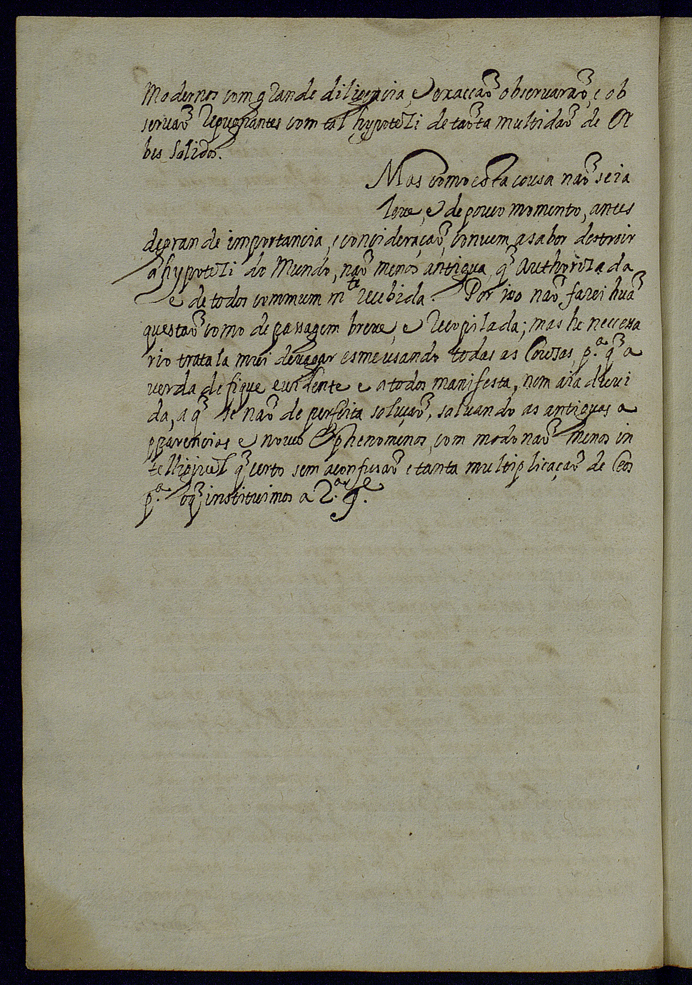 Modernos com grande diligencia, e exacçaõ observaraõ, e ob
servaõ repugnantes com tal hypotesi de tanta multidaõ de Or
bes solidos.
Mas como esta cousa naõ seia
leve, e de pouco momento, antes
de grande importancia, e concideraçaõ, convem a saber destroir
a hypotesi do Mundo, naõ menos antigua, q̃ authorizada
e de todos commum mte recebida. Por isso naõ farei huã
questaõ como de passagem breve, e recopilada; mas he necessa
rio tratala mui devagar esmeusando todas as Cousas, p.a q̃ a
verdade fique evidente e a todos manifesta, nem aia duvi
da, a q̃ se naõ de perfeita soluçaõ, salvando as antiguas a
pparencias e novos Phenomenos, com modo naõ menos in
telligivel q̃ certo sem a confusaõ e tanta multiplicaçaõ de Ceos
p.a o q̃ instituimos a 2.a